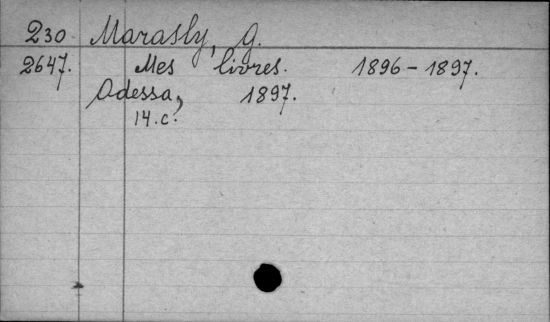 230 Marasly, G.
2647. Mes livres. 1896-1897.
Odessa, 1897.
14.c.